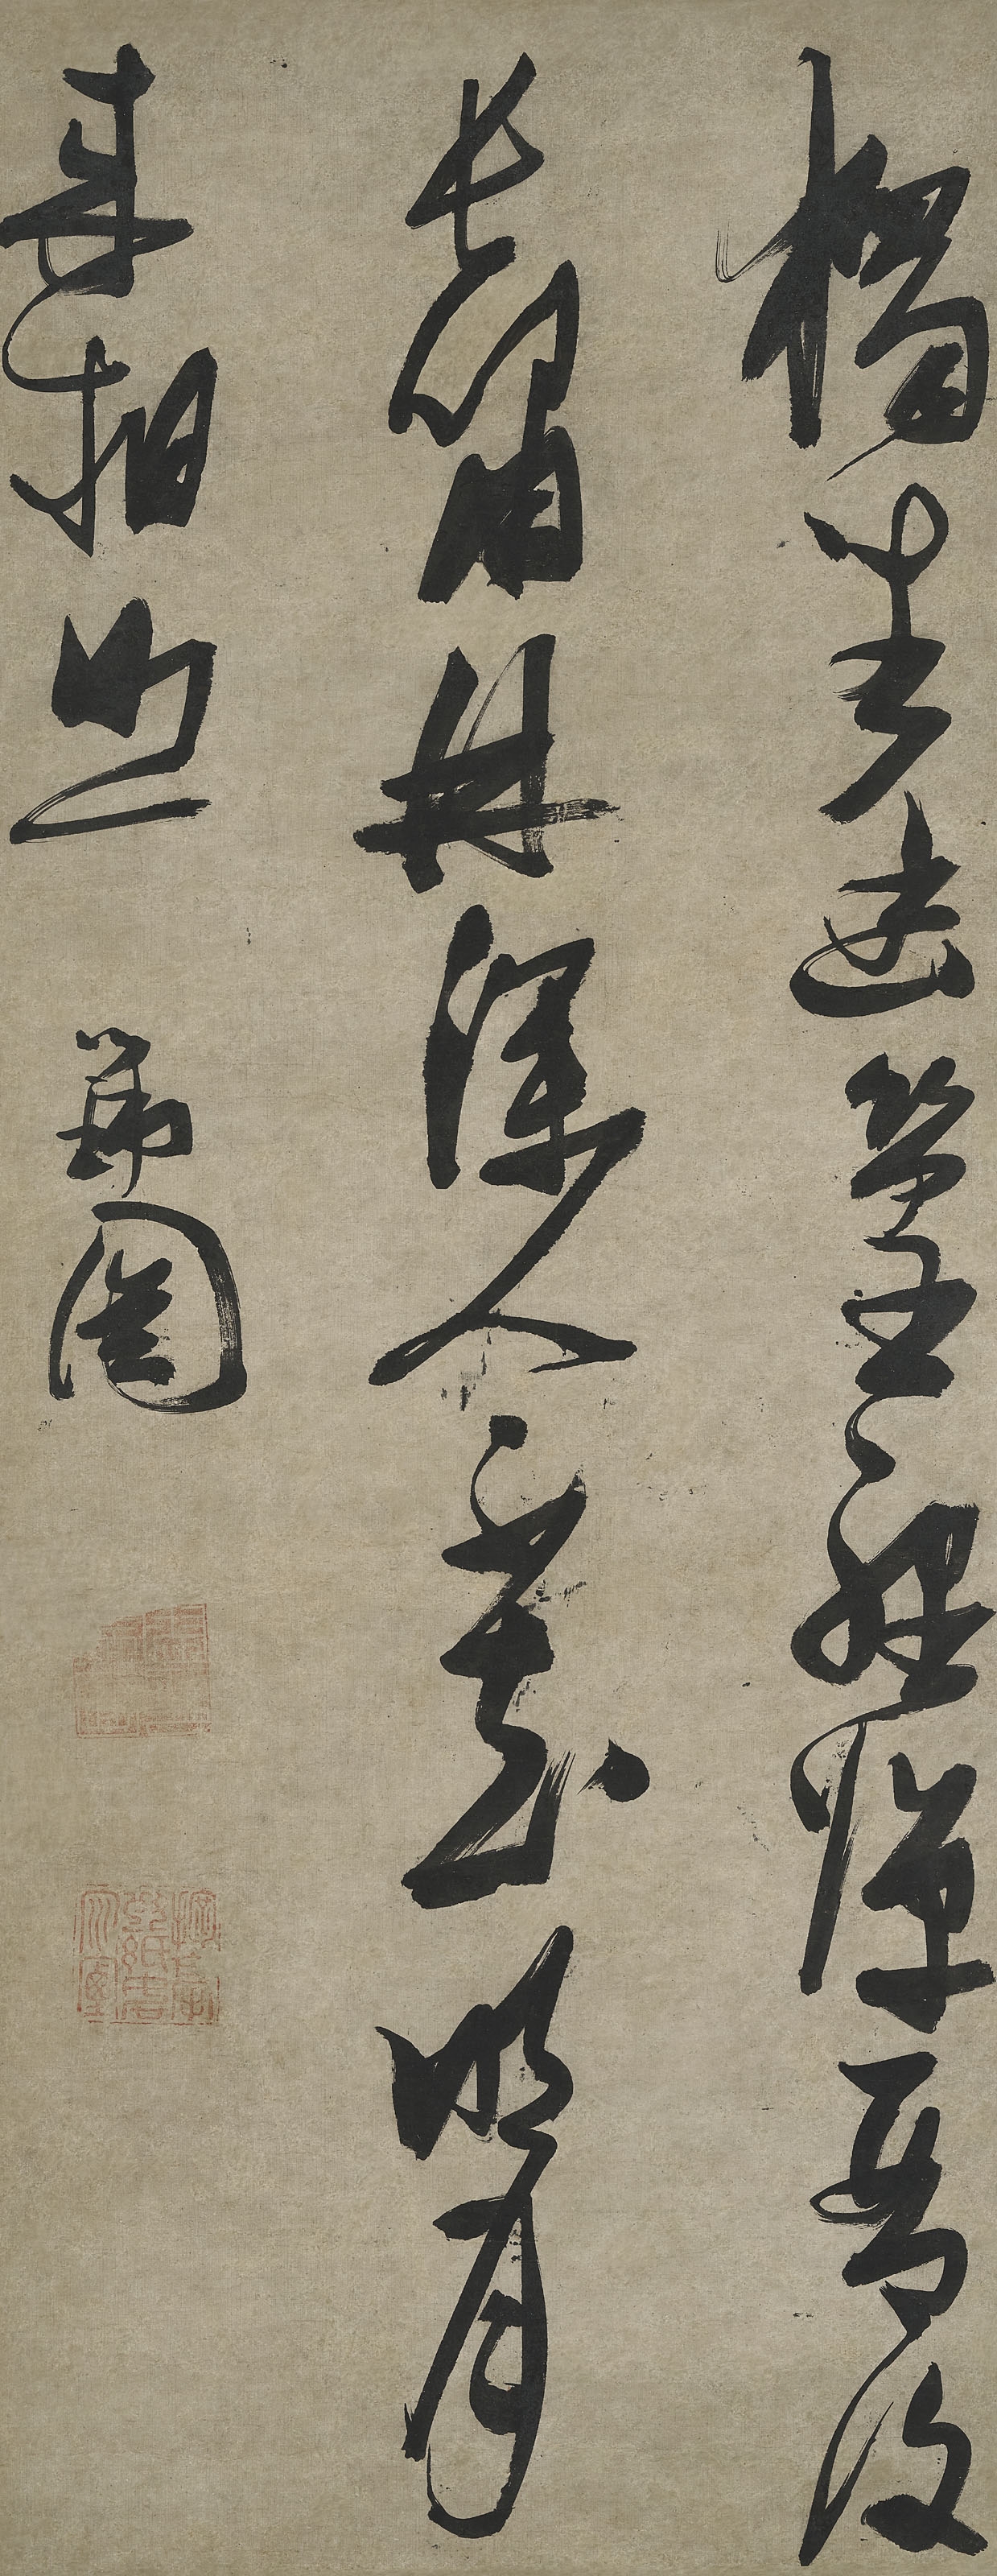 獨坐幽篁裡彈琴復
長嘯林深人不知明月
來相照 瑞圖